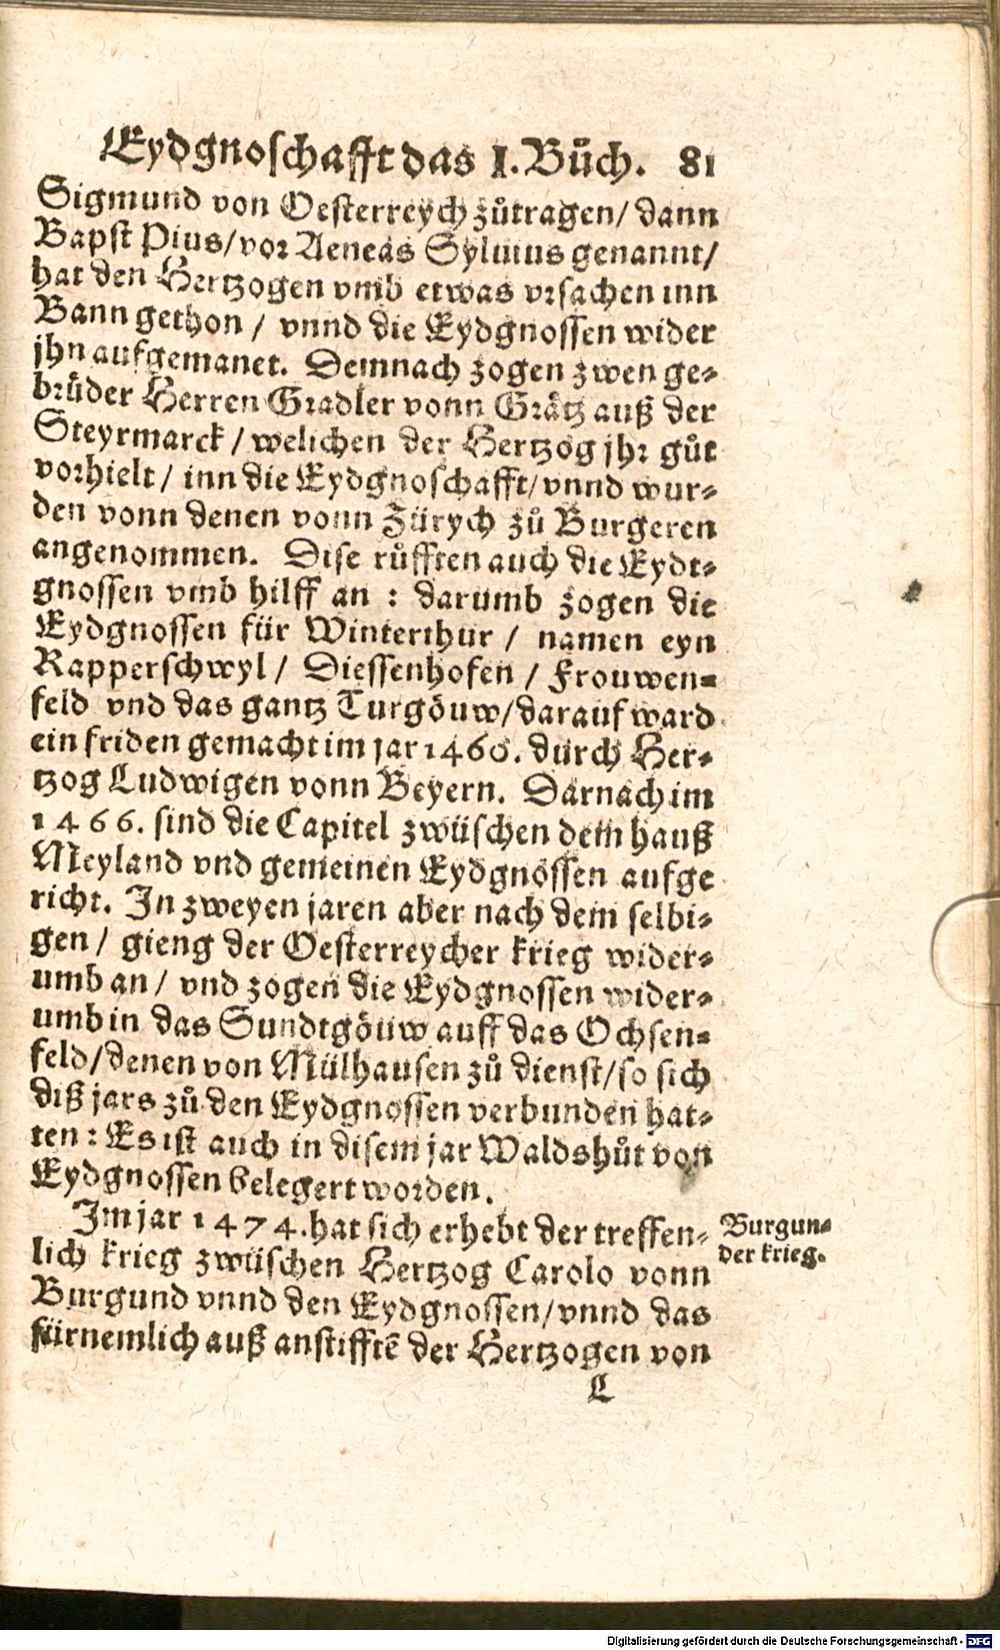 Eydgnoschafft das I. Bůch. 81
Sigmund von Oesterreych zůtragen/ dann
Bapst Pius/ vor Aeneas Syluius genannt/
hat den Hertzogen vmb etwas vrsachen inn
Bann gethon / vnnd die Eydgnossen wider
jhn aufgemanet. Demnach zogen zwen ge-
brüder Herren Gradler vonn Grätz auß der
Steyrmarck / welichen der Hertzog jhr gůt
vorhielt / inn die Eydgnoschafft/ vnnd wur-
den vonn denen vonn Zürych zů Burgeren
angenommen. Dise růfften auch die Eydt-
gnossen vmb hilff an : darumb zogen die
Eydgnossen für Winterthur / namen eyn
Rapperschwyl / Diessenhofen / Frouwen-
feld vnd das gantz Turgöuw/ darauf ward
ein friden gemacht im jar 1460. durch Her-
tzog Ludwigen vonn Beyern. Darnach im
1466. sind die Capitel zwüschen dem hauß
Meyland vnd gemeinen Eydgnossen aufge
richt. In zweyen jaren aber nach dem selbi-
gen / gieng der Oesterreycher krieg wider-
umb an / vnd zogen die Eydgnossen wider-
umb in das Sundtgöuw auff das Ochsen-
feld/ denen von Mülhausen zů dienst/ so sich
diß jars zů den Eydgnossen verbunden hat-
ten : Es ist auch in disem jar Waldshůt von
Eydgnossen belegert worden.
Im jar 1474. hat sich erhebt der treffen-
lich krieg zwüschen Hertzog Carolo vonn
Burgund vnnd den Eydgnossen/ vnnd das
fürnemlich auß anstifftẽ der Hertzogen von
L
Burgun-
der krieg.
Digitalisierung gefördert durch die Deutsche Forschungsgemeinschaft - DFG